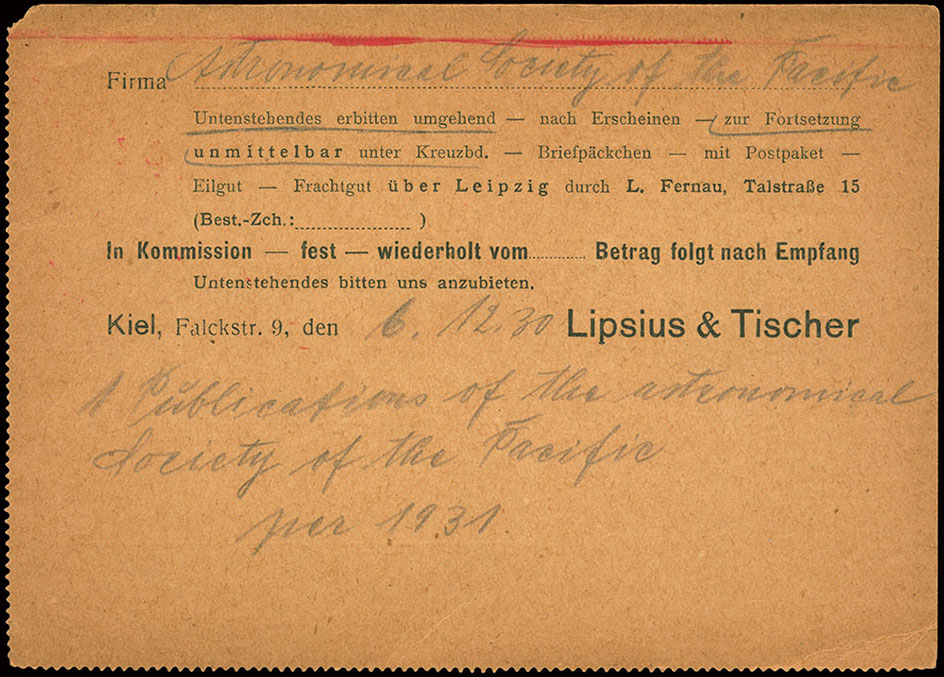 Firma Astronomical Society of the Pacific
Untenstehendes erbitten umgehend — nach Erscheinen — zur Fortsetzung
unmittelbar unter Kreuzbd. — Briefpäckchen — mit Postpaket —
Eilgut — Frachtgut über Leipzig durch L. Fernau, Talstraße 15
(Best.-Zch.: )
In Kommission — fest — wiederholt vom Betrag folgt nach Empfang
Untenstehendes bitten uns anzubieten.
Kiel, Falckstr. 9, den 6. 12.30 Lipsius & Tischer
1 Publications of the astronomical
Society of the Pacific
per 1931.